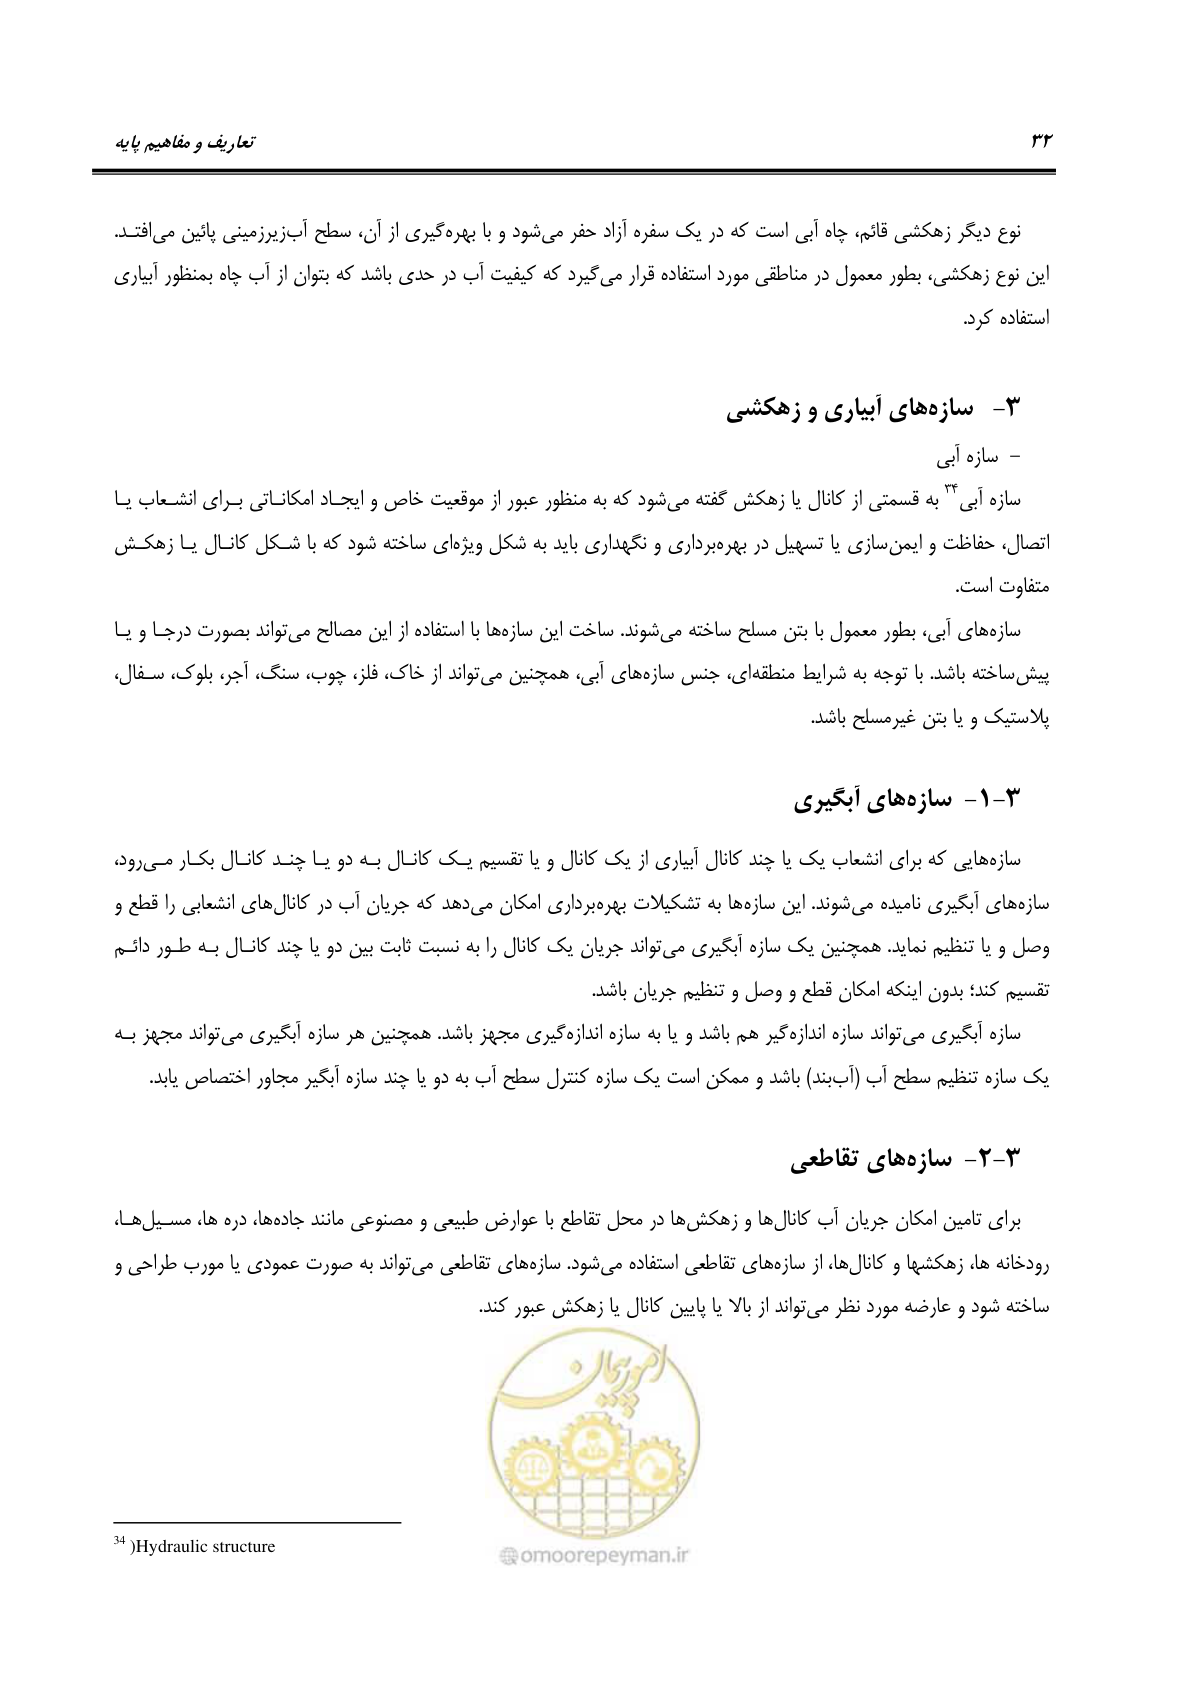 ۳۲
تعاریف و مفاهیم پایه
نوع دیگر زهکشی قائم، چاه آبی است که در یک سفره آزاد حفر می‌شود و با بهره‌گیری از آن، سطح آب‌زیرزمینی پائین می‌افتـد.
این نوع زهکشی، بطور معمول در مناطقی مورد استفاده قرار می‌گیرد که کیفیت آب در حدی باشد که بتوان از آب چاه بمنظور آبیاری
استفاده کرد.
۳- سازه‌های آبیاری و زهکشی
- سازه آبی
سازه آبی۳۴ به قسمتی از کانال یا زهکش گفته می‌شود که به منظور عبور از موقعیت خاص و ایجـاد امکانـاتی بـرای انشـعاب یـا
اتصال، حفاظت و ایمن‌سازی یا تسهیل در بهره‌برداری و نگهداری باید به شکل ویژه‌ای ساخته شود که با شـکل کانـال یـا زهکـش
متفاوت است.
سازه‌های آبی، بطور معمول با بتن مسلح ساخته می‌شوند. ساخت این سازه‌ها با استفاده از این مصالح می‌تواند بصورت درجـا و یـا
پیش‌ساخته باشد. با توجه به شرایط منطقه‌ای، جنس سازه‌های آبی، همچنین می‌تواند از خاک، فلز، چوب، سنگ، آجر، بلوک، سـفال،
پلاستیک و یا بتن غیرمسلح باشد.
۳-۱- سازه‌های آبگیری
سازه‌هایی که برای انشعاب یک یا چند کانال آبیاری از یک کانال و یا تقسیم یـک کانـال بـه دو یـا چنـد کانـال بکـار مـی‌رود،
سازه‌های آبگیری نامیده می‌شوند. این سازه‌ها به تشکیلات بهره‌برداری امکان می‌دهد که جریان آب در کانال‌های انشعابی را قطع و
وصل و یا تنظیم نماید. همچنین یک سازه آبگیری می‌تواند جریان یک کانال را به نسبت ثابت بین دو یا چند کانـال بـه طـور دائـم
تقسیم کند؛ بدون اینکه امکان قطع و وصل و تنظیم جریان باشد.
سازه آبگیری می‌تواند سازه اندازه‌گیر هم باشد و یا به سازه اندازه‌گیری مجهز باشد. همچنین هر سازه آبگیری می‌تواند مجهز بـه
یک سازه تنظیم سطح آب (آب‌بند) باشد و ممکن است یک سازه کنترل سطح آب به دو یا چند سازه آبگیر مجاور اختصاص یابد.
۳-۲- سازه‌های تقاطعی
برای تامین امکان جریان آب کانال‌ها و زهکش‌ها در محل تقاطع با عوارض طبیعی و مصنوعی مانند جاده‌ها، دره ها، مسـیل‌هـا،
رودخانه ها، زهکشها و کانال‌ها، از سازه‌های تقاطعی استفاده می‌شود. سازه‌های تقاطعی می‌تواند به صورت عمودی یا مورب طراحی و
ساخته شود و عارضه مورد نظر می‌تواند از بالا یا پایین کانال یا زهکش عبور کند.
امور پیمان
34 )Hydraulic structure
omoorepeyman.ir